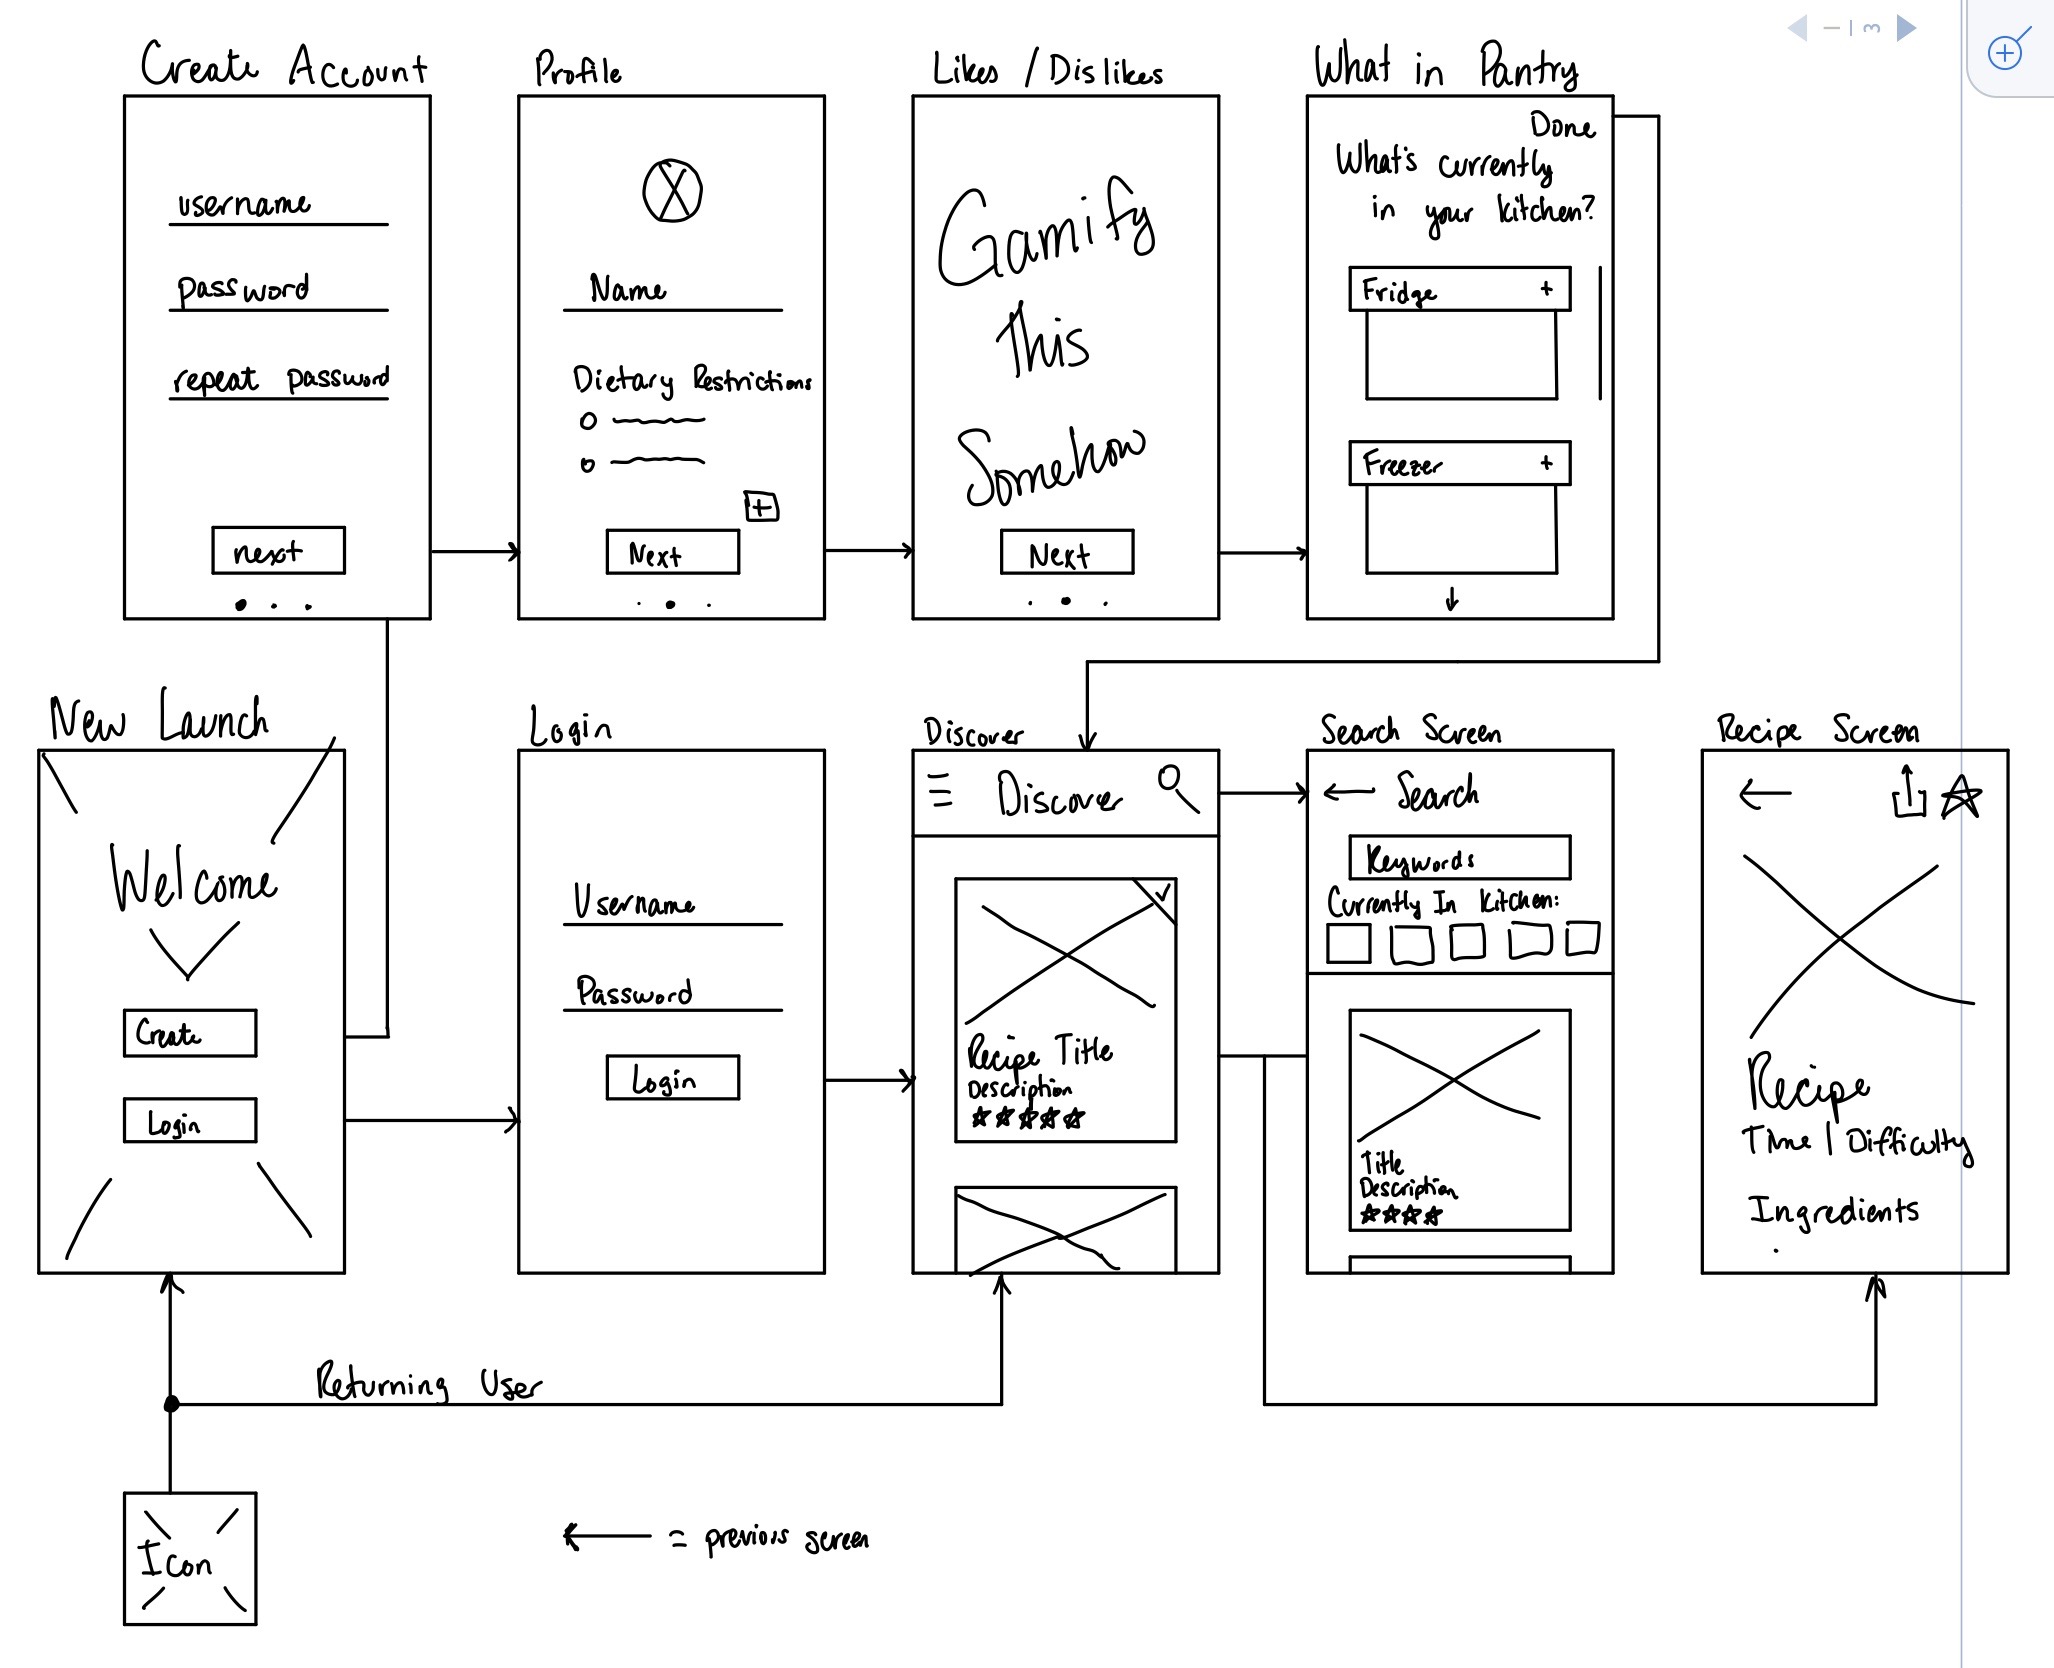 Create Account
username
password
repeat password
next
Profile
Name
Dietary Restrictions
+
Next
Likes / Dislikes
Gamify
this
Somehow
Next
What in Pantry
Done
What's currently
in your kitchen?
Fridge +
Freezer +
1 | 3
New Launch
Welcome
Create
Login
Login
Username
Password
Login
Discover
Discover
Recipe Title
Description
Search Screen
Search
Keywords
Currently In Kitchen:
Title
Description
Recipe Screen
Recipe
Time | Difficulty
Ingredients
Returning User
Icon
= previous screen